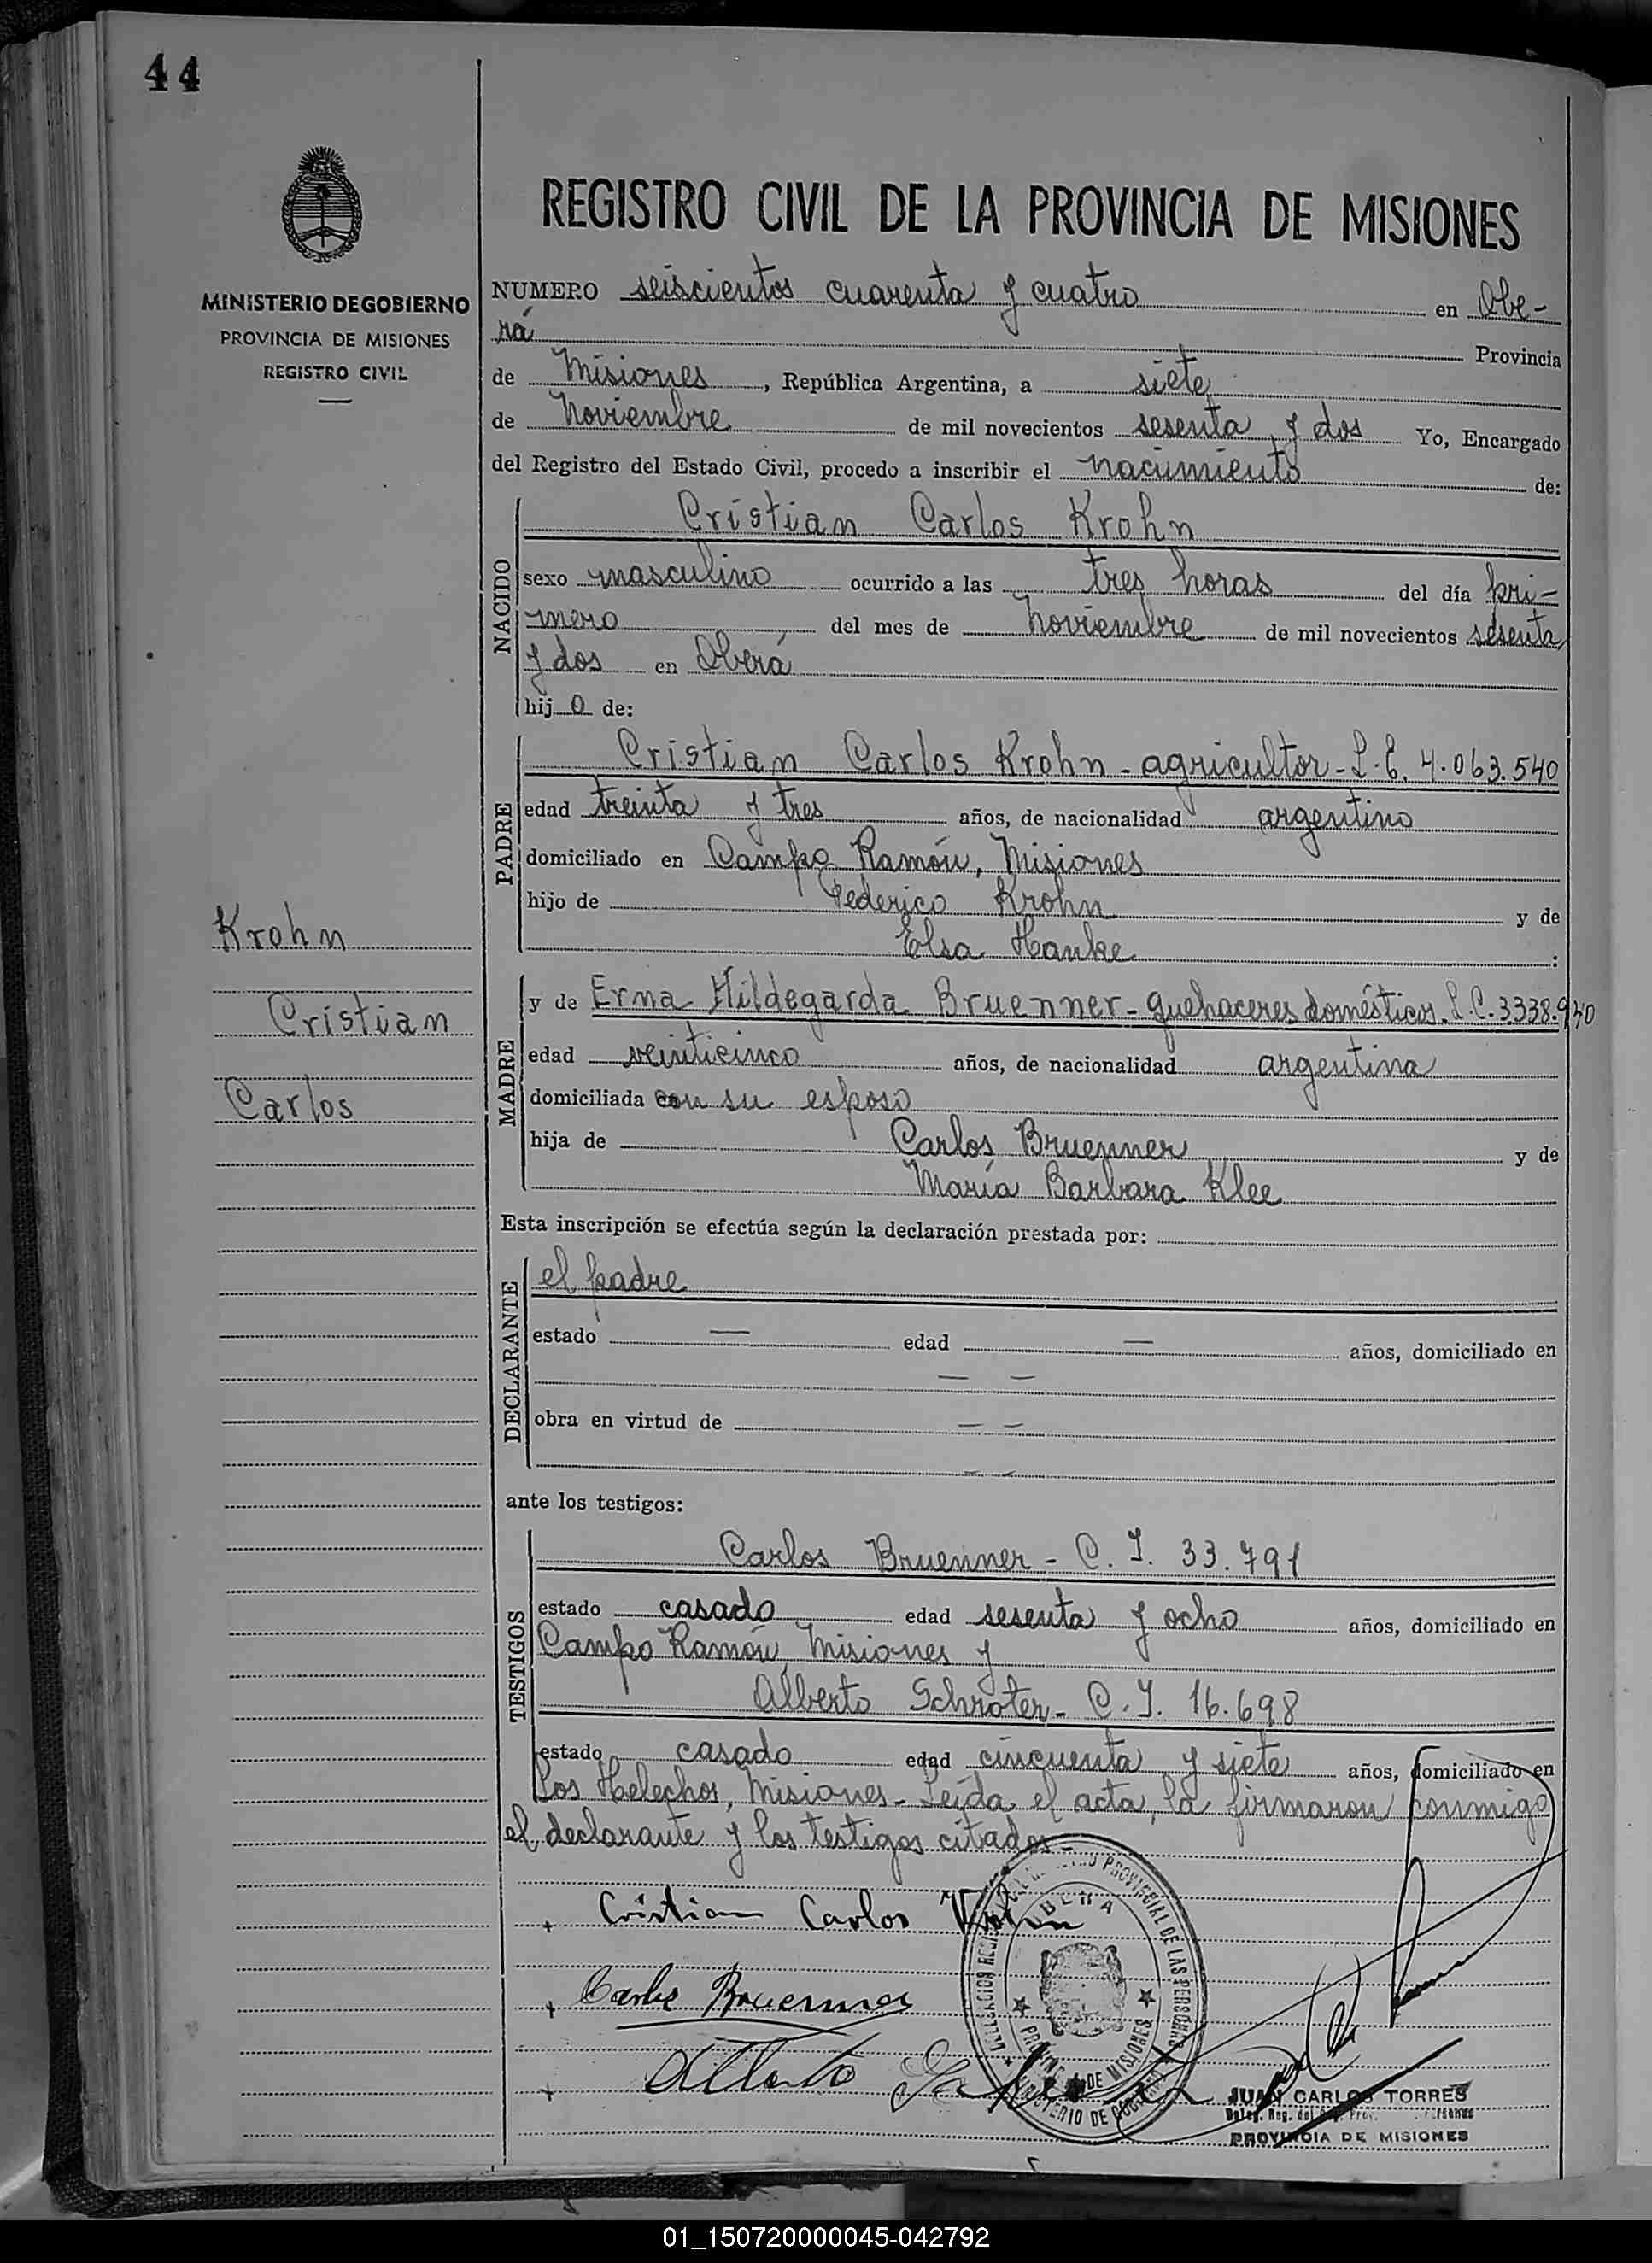 44
MINISTERIO DE GOBIERNO
PROVINCIA DE MISIONES
REGISTRO CIVIL
REGISTRO CIVIL DE LA PROVINCIA DE MISIONES
NUMERO seiscientos cuarenta y cuatro en Obe-
rá Provincia
de Misiones, República Argentina, a siete
de Noviembre de mil novecientos sesenta y dos Yo, Encargado
del Registro del Estado Civil, procedo a inscribir el nacimiento de:
NACIDO
Cristian Carlos Krohn
sexo masculino ocurrido a las tres horas del día pri-
mero del mes de Noviembre de mil novecientos sesenta
y dos en Oberá
hij o de:
PADRE
Cristian Carlos Krohn - agricultor - L.E. 4.063.540
edad treinta y tres años, de nacionalidad argentino
domiciliado en Campo Ramón, Misiones
hijo de Federico Krohn y de
Elsa Hanke :
Krohn
Cristian
Carlos
MADRE
y de Erma Hildegarda Bruenner - quehaceres domésticos. L.C. 3.338.940
edad veinticinco años, de nacionalidad argentina
domiciliada con su esposo
hija de Carlos Bruenner y de
María Barbara Klee
Esta inscripción se efectúa según la declaración prestada por:
DECLARANTE
el padre
estado — edad — años, domiciliado en
— —
obra en virtud de — —
— —
ante los testigos:
TESTIGOS
Carlos Bruenner - C. I. 33.791
estado casado edad sesenta y ocho años, domiciliado en
Campo Ramón, Misiones y
Alberto Schroter - C. I. 16.698
estado casado edad cincuenta y siete años, domiciliado en
Los Helechos, Misiones - Leída el acta, la firmaron conmigo
el declarante y los testigos citados -
Cristian Carlos Krohn
Carlos Bruenner
Alberto
OBERA
PROVINCIAL DE LAS PERSONAS
PROVINCIA DE MISIONES
MINISTERIO DE GOBIERNO
JUAN CARLOS TORRES
PROVINCIA DE MISIONES
01_150720000045-042792